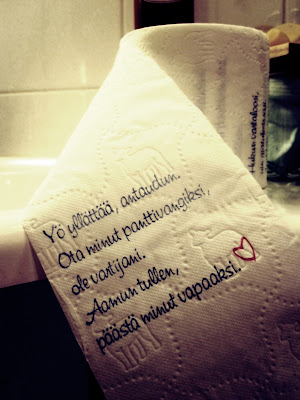 Yö yllättää, antaudun.
Ota minut panttivangiksi,
ole vartijani.
Aamun tullen,
päästä minut vapaaksi.